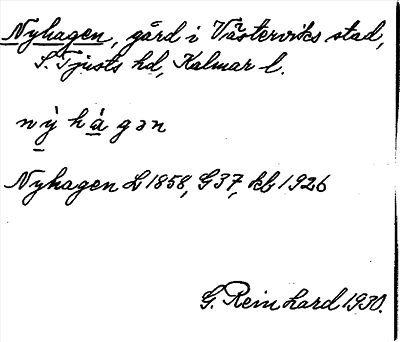 Nyhagen, gård i Västerviks stad,
S. Tjusts hd, Kalmar l.
nỳ hà gən
Nyhagen L 1858, G 37, kb 1926
G. Reinhard 1930.